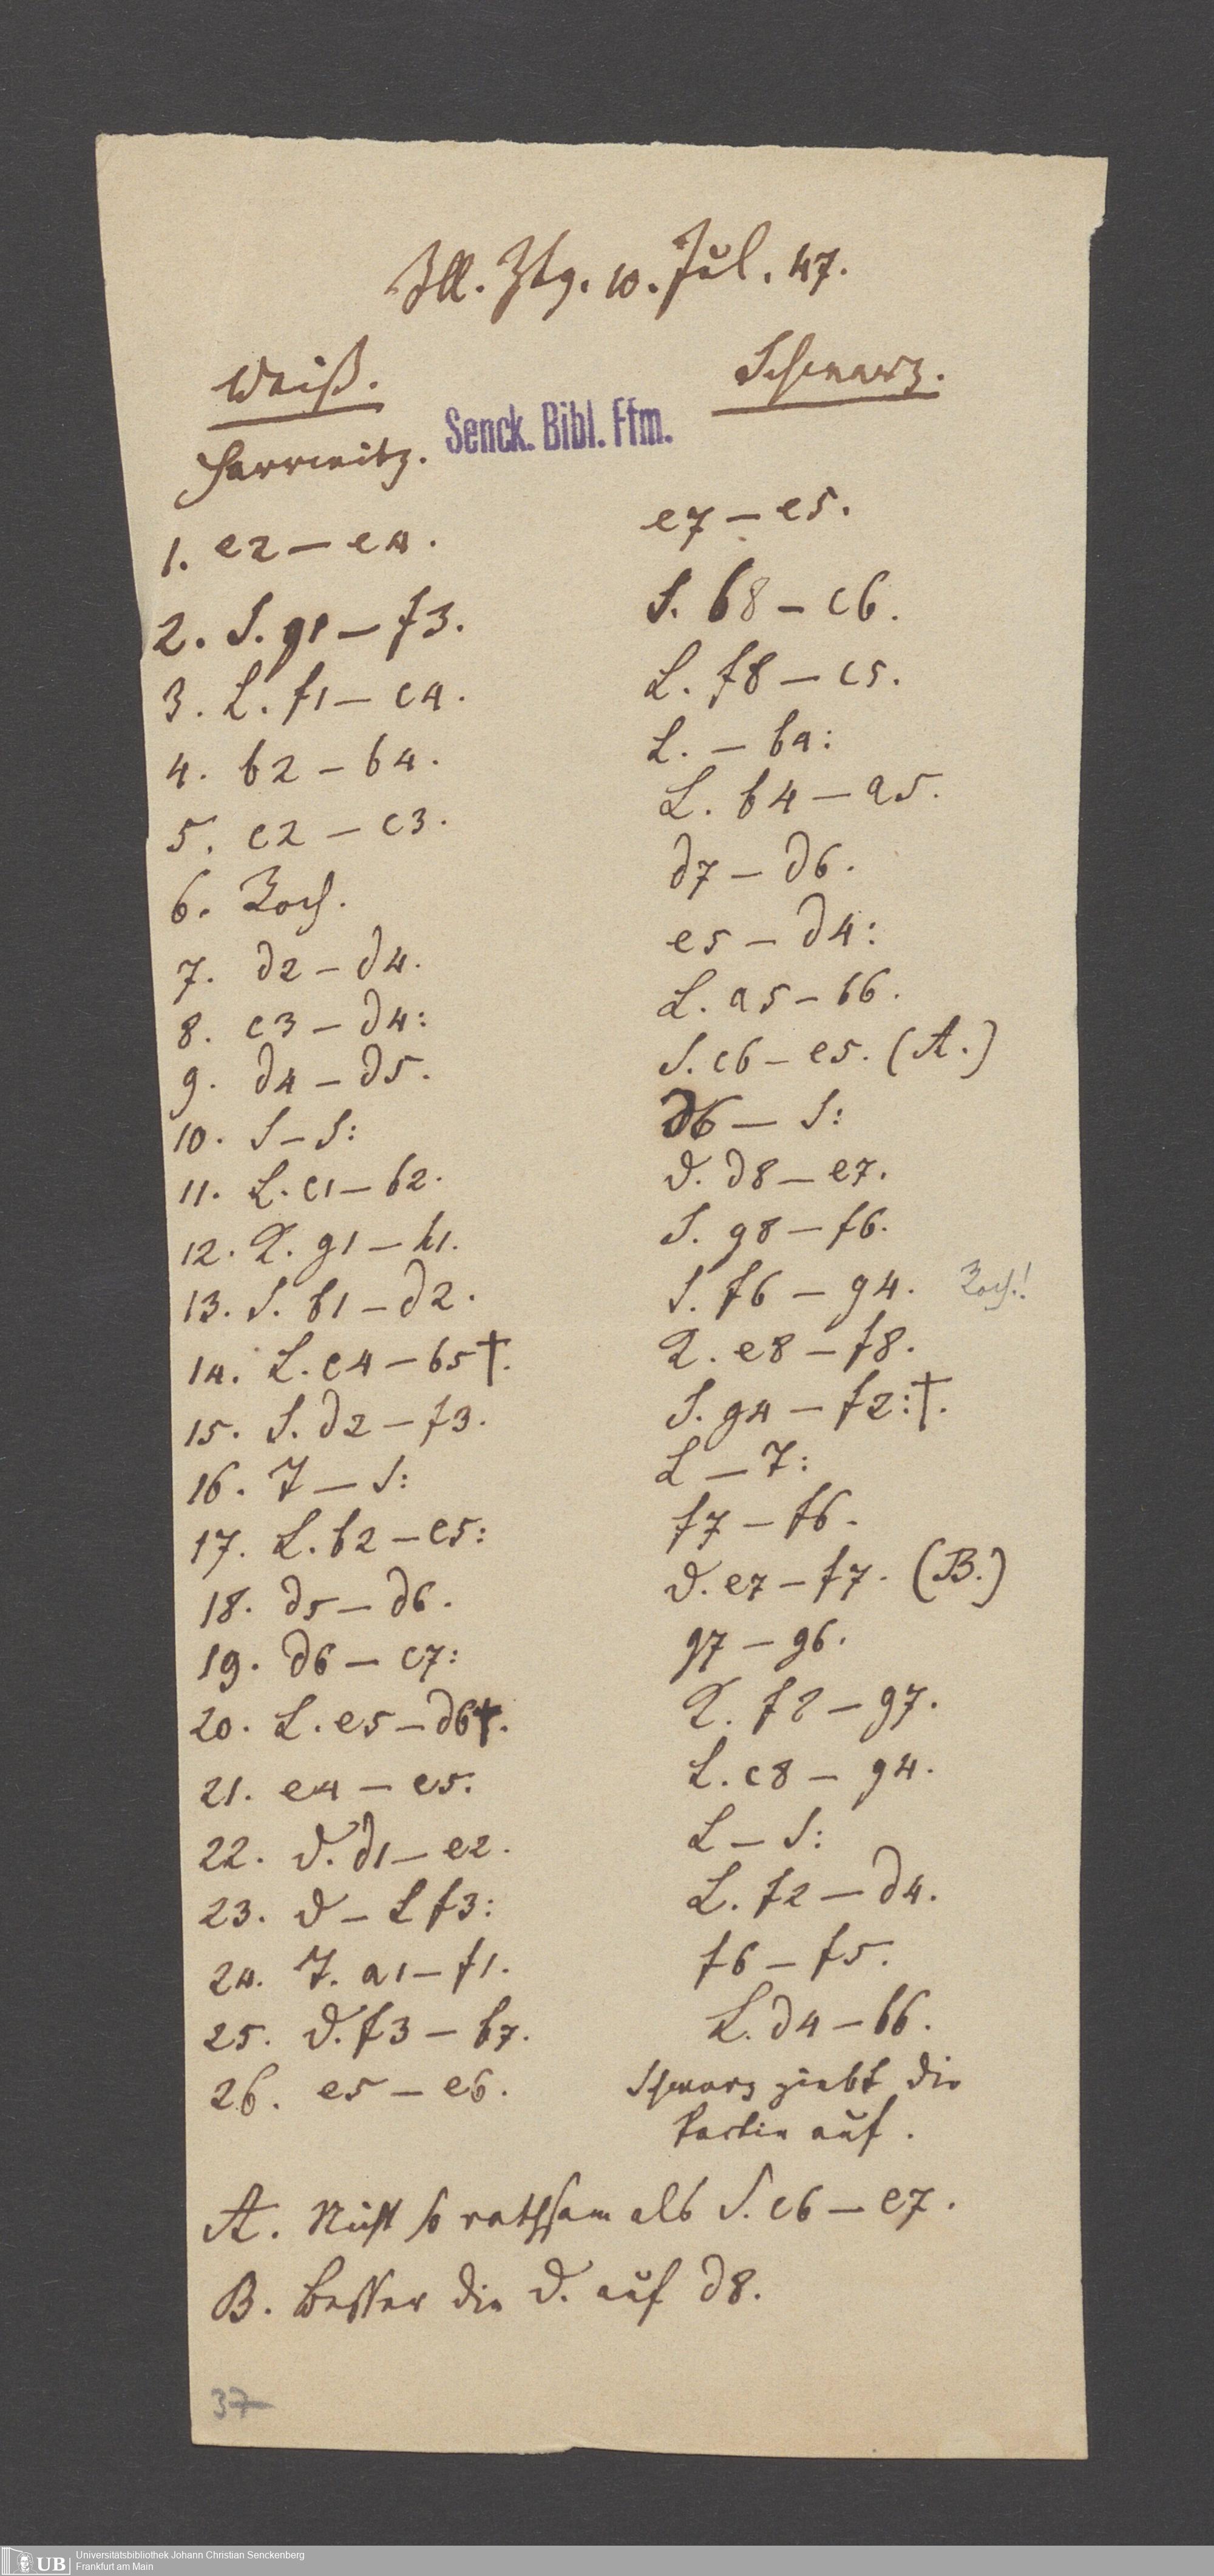 Ill. Ztg. 10. Jul. 47.
Weiß. Schwarz.
Senck. Bibl. Ffm.
Harrwitz.
1. e2 – e4. e7 – e5.
2. S. g1 – f3. S. b8 – c6.
3. L. f1 – c4. L. f8 – c5.
4. b2 – b4. L. – b4:
5. c2 – c3. L. b4 – a5.
6. Roch. d7 – d6.
7. d2 – d4. e5 – d4:
8. c3 – d4: L. a5 – b6.
9. d4 – d5. S. c6 – e5. (A.)
10. S – S: d6 – S:
11. L. c1 – b2. D. d8 – e7.
12. K. g1 – h1. S. g8 – f6.
13. S. b1 – d2. S. f6 – g4. Roch.!
14. L. c4 – b5†. K. e8 – f8.
15. S. d2 – f3. S. g4 – f2:†.
16. T – S: L – T:
17. L. b2 – e5: f7 – f6.
18. d5 – d6. D. e7 – f7. (B.)
19. d6 – c7: g7 – g6.
20. L. e5 – d6†. K. f8 – g7.
21. e4 – e5. L. c8 – g4.
22. D. d1 – e2. L – S:
23. D – L f3: L. f2 – d4.
24. T. a1 – f1. f6 – f5.
25. D. f3 – b7. L. d4 – b6.
26. e5 – e6. Schwarz giebt die
Partie auf.
A. Nicht so rathsam als S. c6 – e7.
B. Besser die D. auf d8.
37
UB Universitätsbibliothek Johann Christian Senckenberg
Frankfurt am Main